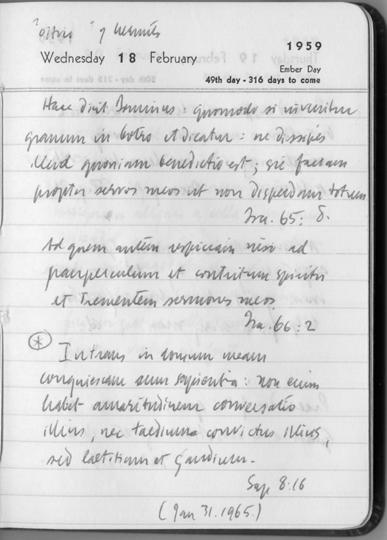 of hermits
1959
Wednesday 18 February
Ember Day
49th day - 316 days to come
Haec dicit Dominus : quomodo si inveniatur
granum in botro et dicatur : ne dissipes
illud quoniam benedictio est ; sic faciam
propter servos meos ut non disperdam totum
Isa. 65 : 8.
Ad quem autem respiciam nisi ad
pauperculum et contritum spiritu
et trementem sermones meos
Isa. 66 : 2
* Intrans in domum meam
conquiescam cum sapientia : non enim
habet amaritudinem conversatio
illius, nec taedium convictus illius,
sed laetitiam et gaudium.
Sap 8:16
(Jan 31. 1965.)